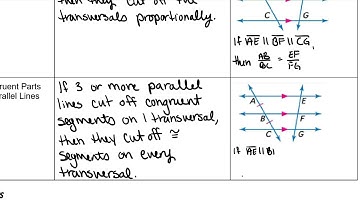 then they cut off the
transversals proportionally.
C G
If AE || BF || CG,
then AB/BC = EF/FG
ruent Parts
rallel Lines
If 3 or more parallel
lines cut off congruent
segments on 1 transversal,
then they cut off ≅
segments on every
transversal.
A E
B F
C G
If AE || B
s